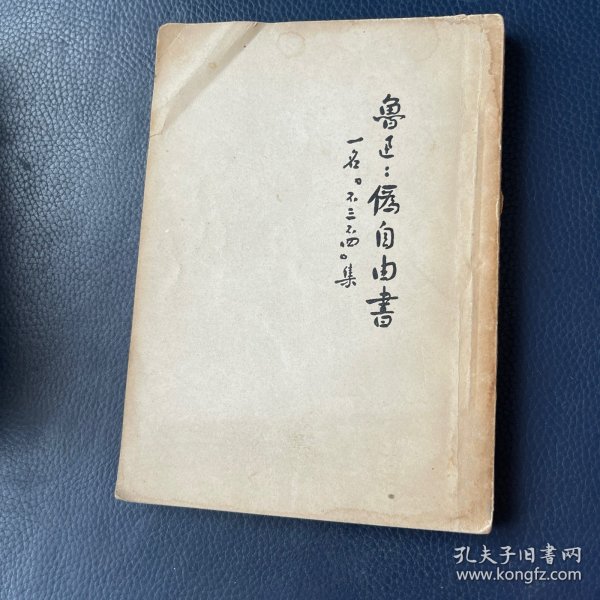 魯迅：僞自由書
一名“不三不四”集
孔夫子旧書网
www.kongfz.com